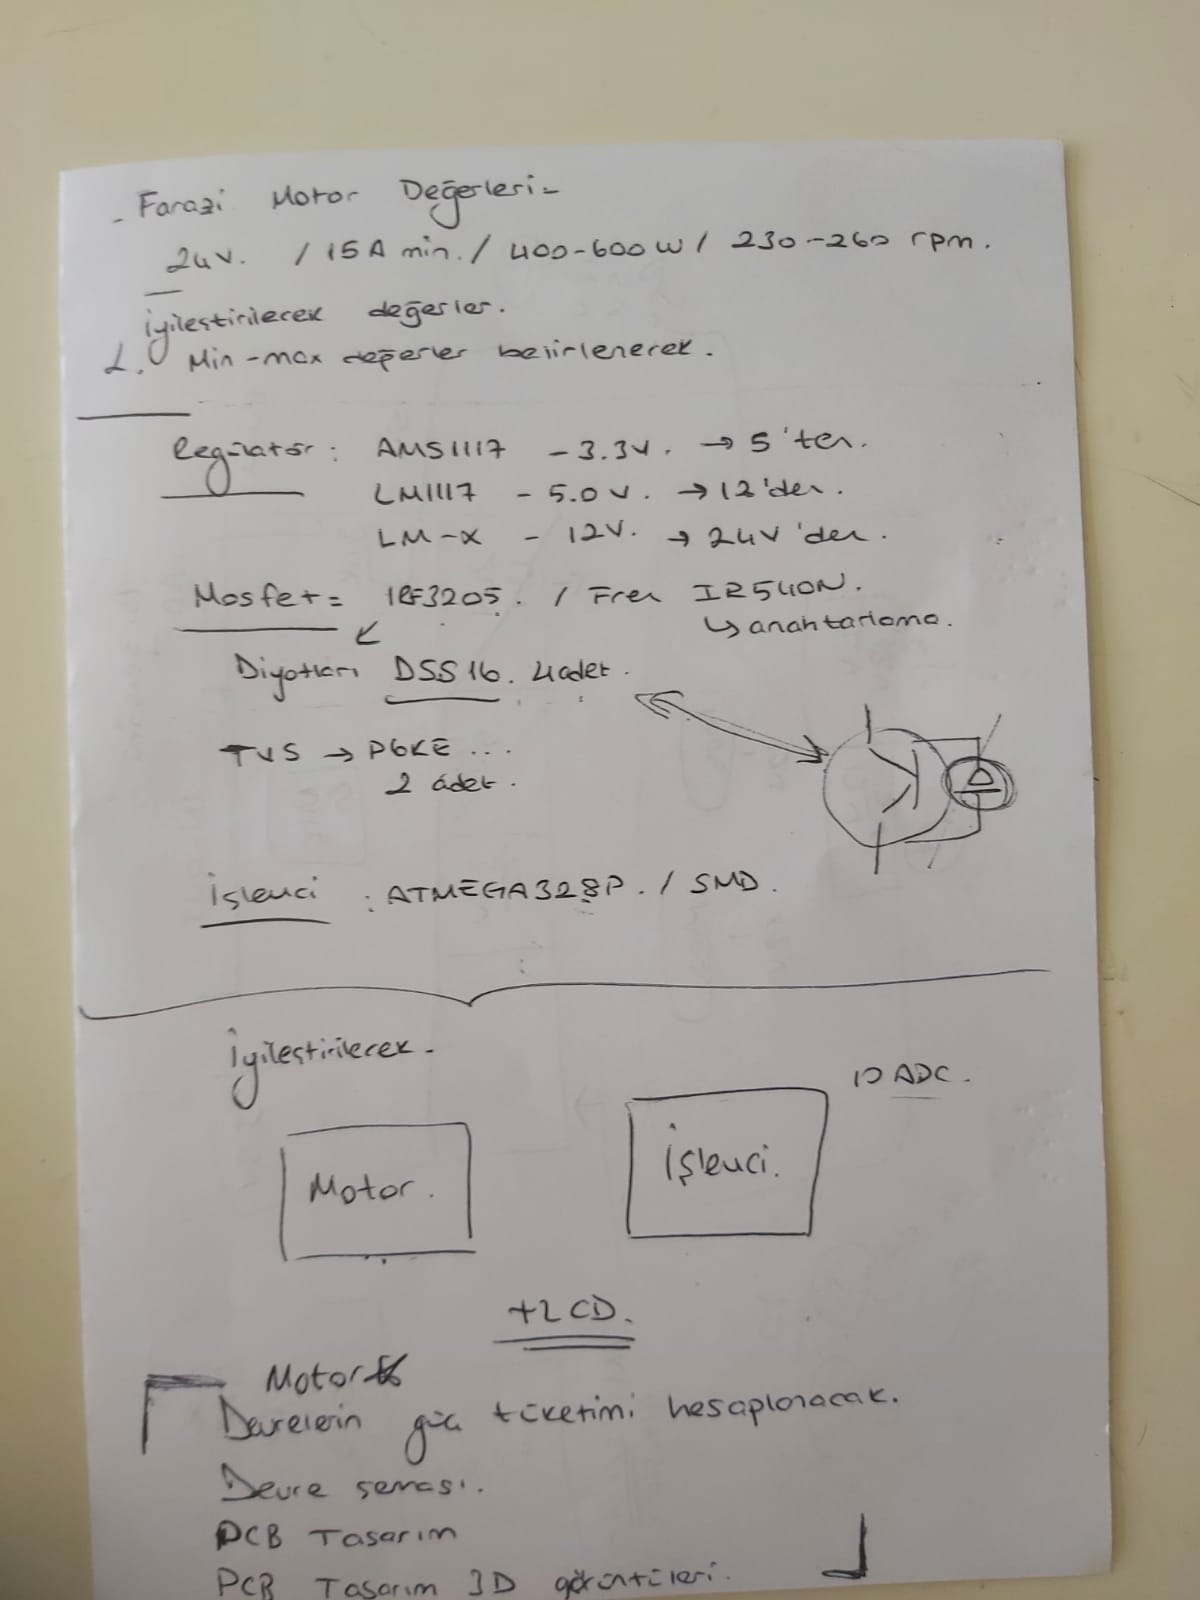 - Farazi Motor Değerleri -
24V. / 15A min. / 400-600W / 230-260 rpm.
iyileştirilecek değerler.
Min-max değerler belirlenecek.
Regülatör : AMS1117 - 3.3V. → 5'ten.
LM1117 - 5.0V. → 12'den.
LM-X - 12V. → 24V'den.
Mosfet = IRF3205. / Fren IR540N.
↳ anahtarlama.
Diyotları DSS16. 4 adet.
TVS → P6KE ...
2 adet.
İşlemci : ATMEGA328P. / SMD.
İyileştirilecek.
10 ADC.
Motor.
İşlemci.
+LCD.
Motor
Devrelerin güç tüketimi hesaplanacak.
Devre şeması.
PCB Tasarım
PCB Tasarım 3D görüntüleri.